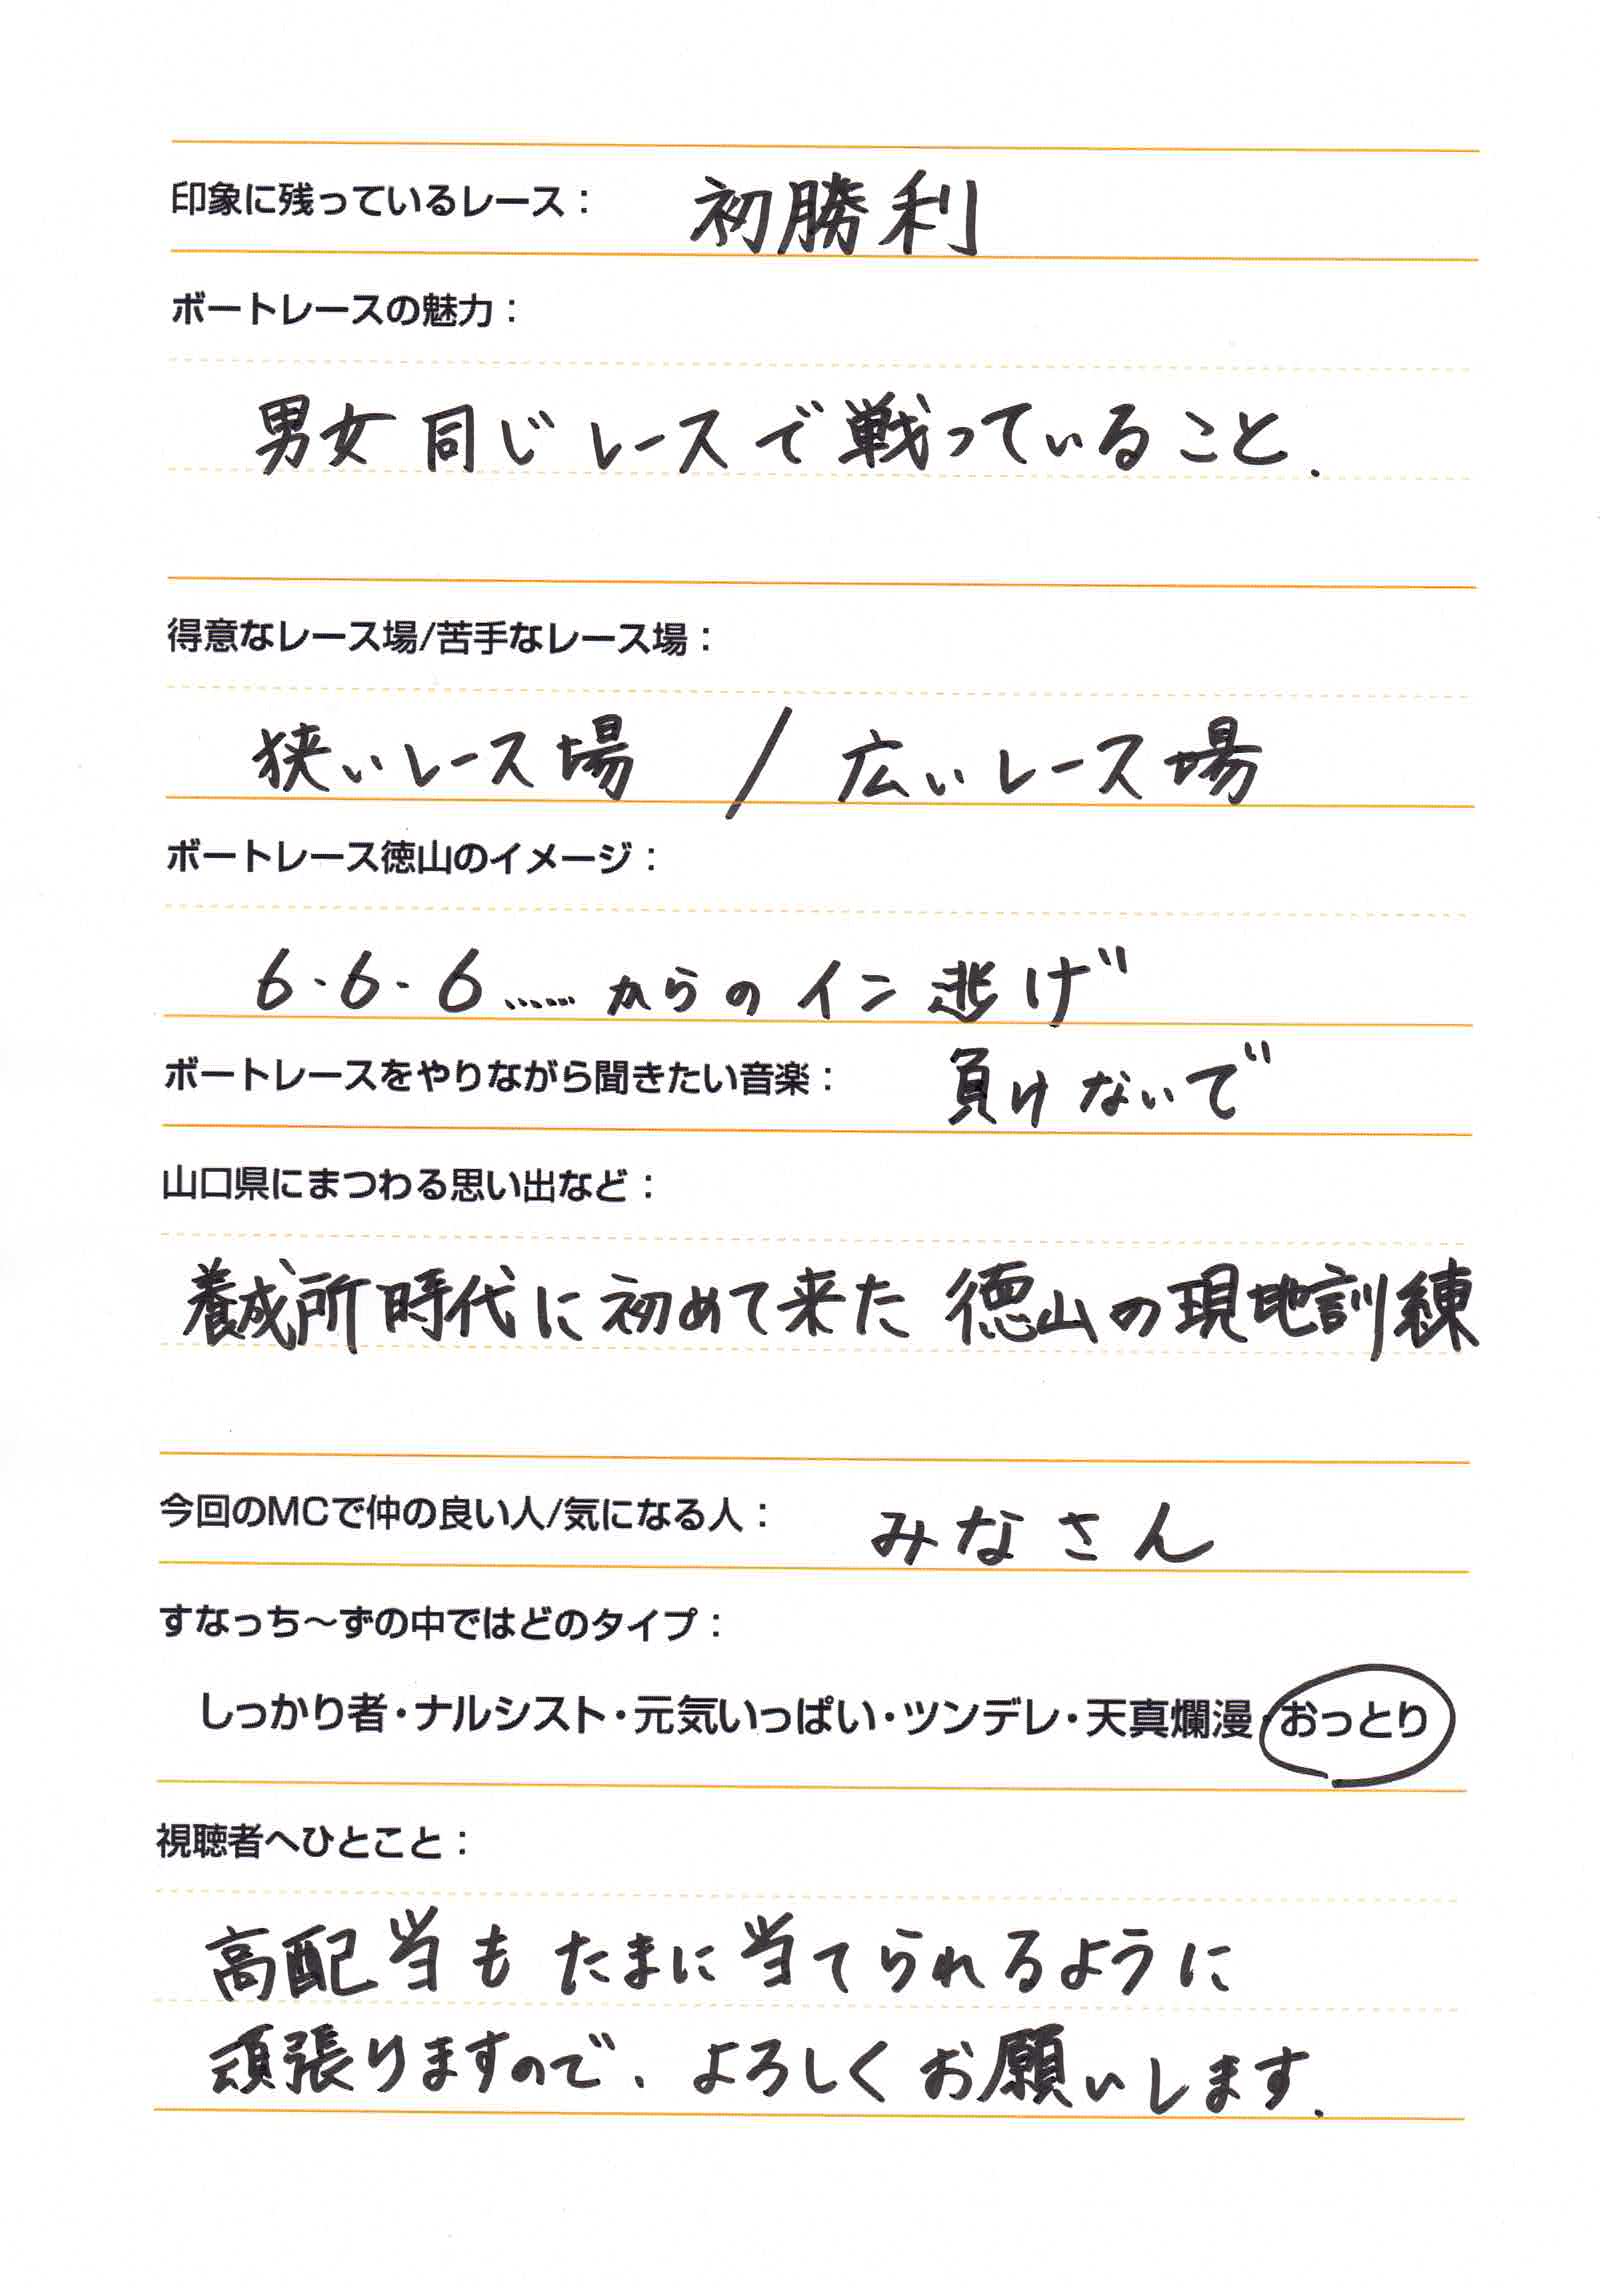 印象に残っているレース： 初勝利
ボートレースの魅力：
男女同じレースで戦っていること.
得意なレース場/苦手なレース場：
狭いレース場 / 広いレース場
ボートレース徳山のイメージ：
6・6・6……からのイン逃げ
ボートレースをやりながら聞きたい音楽： 負けないで
山口県にまつわる思い出など：
養成所時代に初めて来た徳山の現地訓練
今回のMCで仲の良い人/気になる人： みなさん
すなっち～ずの中ではどのタイプ：
しっかり者・ナルシスト・元気いっぱい・ツンデレ・天真爛漫・おっとり
視聴者へひとこと：
高配当もたまに当てられるように
頑張りますので、よろしくお願いします.